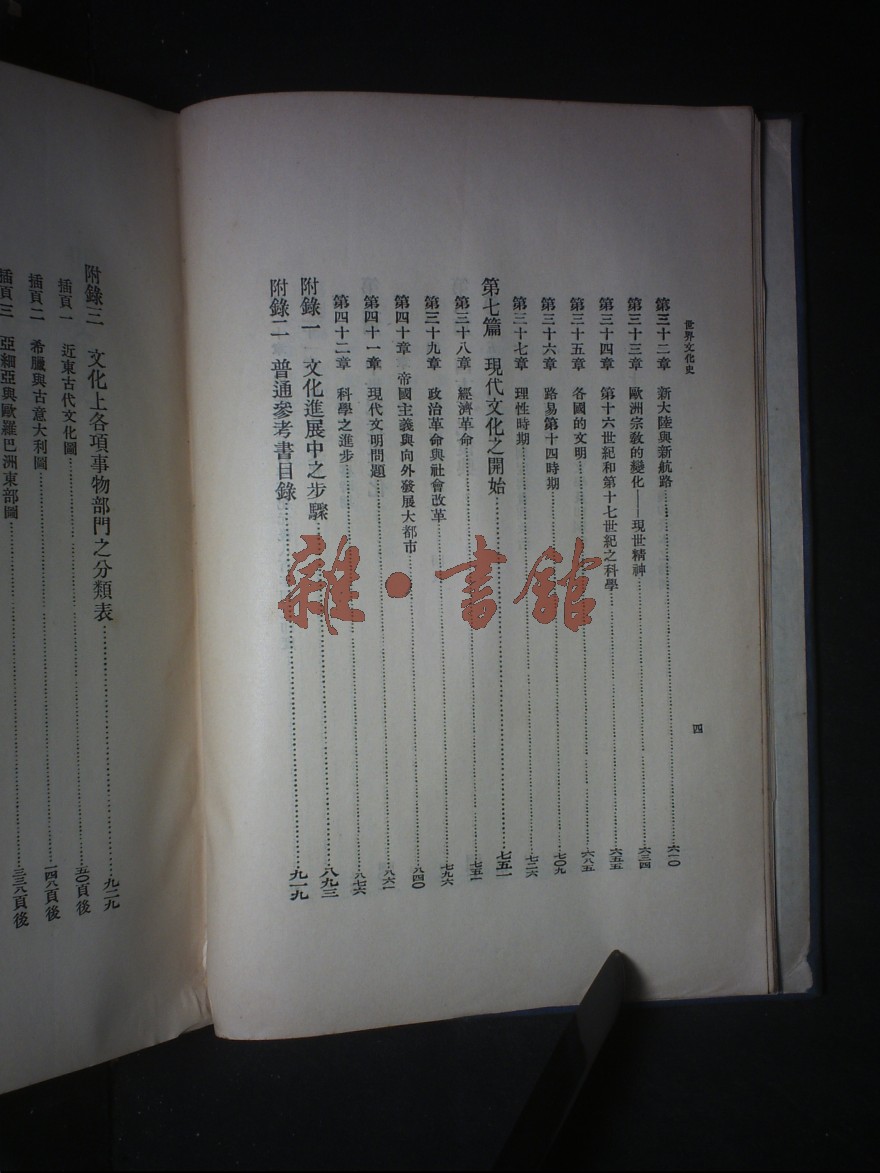 世界文化史
四
第三十二章 新大陸與新航路…………六一〇
第三十三章 歐洲宗教的變化——現世精神…………六三四
第三十四章 第十六世紀和第十七世紀之科學…………六五五
第三十五章 各國的文明…………六八五
第三十六章 路易第十四時期…………七〇九
第三十七章 理性時期…………七二六
第七篇 現代文化之開始…………七五一
第三十八章 經濟革命…………七五一
第三十九章 政治革命與社會改革…………七九六
第四十章 帝國主義與向外發展大都市…………八四〇
第四十一章 現代文明問題…………八六一
第四十二章 科學之進步…………八七六
附錄一 文化進展中之步驟…………八九三
附錄二 普通參考書目錄…………九一九
附錄三 文化上各項事物部門之分類表…………九二九
插頁一 近東古代文化圖…………五〇頁後
插頁二 希臘與古意大利圖…………一四八頁後
插頁三 亞細亞與歐羅巴洲東部圖…………三三八頁後
雜·書館